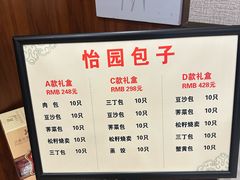 怡园包子
A款礼盒
RMB 248元
肉包 10只
豆沙包 10只
荠菜包 10只
松籽烧卖 10只
三丁包 10只
C款礼盒
RMB 298元
三丁包 10只
豆沙包 10只
荠菜包 10只
松籽烧卖 10只
蒸饺 10只
D款礼盒
RMB 428元
豆沙包 10只
荠菜包 10只
松籽烧卖 10只
三丁包 10只
蟹黄包 10只